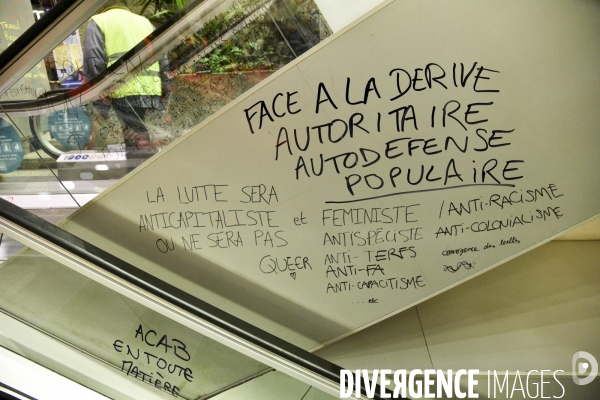 FACE A LA DERIVE
AUTORITAIRE
AUTODEFENSE
POPULAIRE
LA LUTTE SERA
ANTICAPITALISTE et
OU NE SERA PAS
FEMINISTE
ANTISPÉCISTE
ANTI-TERFS
ANTI-FA
ANTI-CAPACITISME
... etc
QUEER
/ANTI-RACISME
ANTI-COLONIALISME
convergence des luttes
ACAB
EN TOUTE
MATIÈRE
DIVERGENCE IMAGES